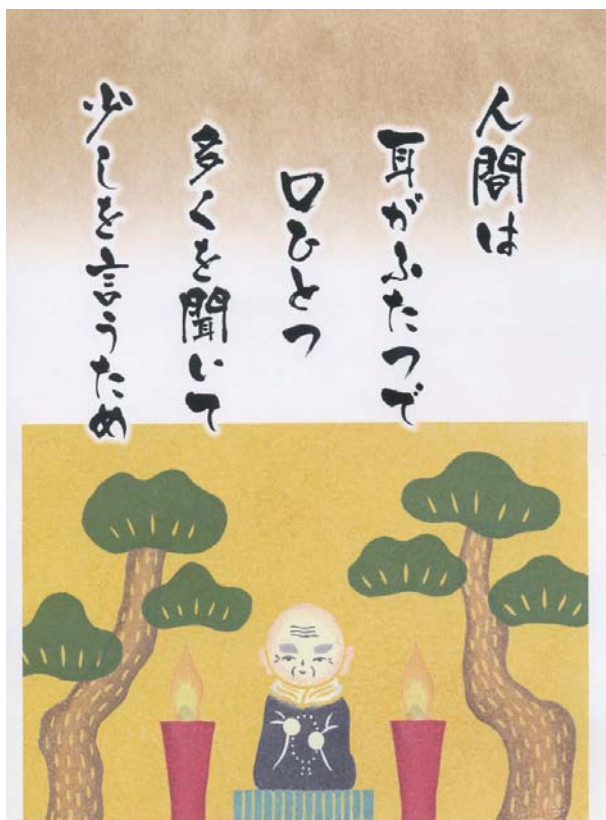 人間は
耳がふたつで
口ひとつ
多くを聞いて
少しを言うため